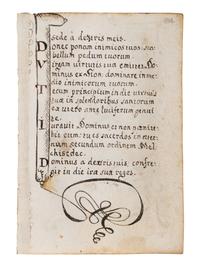 sede à dextris meis.
Donec ponam inimicos tuos: sca
bellum pedum tuorum.
Virgam virtutis tuæ emittet Do
minus ex Sion: dominare in me
dio inimicorum tuorum.
Tecum principium in die virtutis
tuæ in splendoribus sanctorum
ex utero ante luciferum genui
te.
Iuravit Dominus et non pœnite
bit eum: tu es sacerdos in æter
num secundum ordinem Mel
chisedec.
Dominus a dextris tuis, confre
git in die iræ suæ reges.